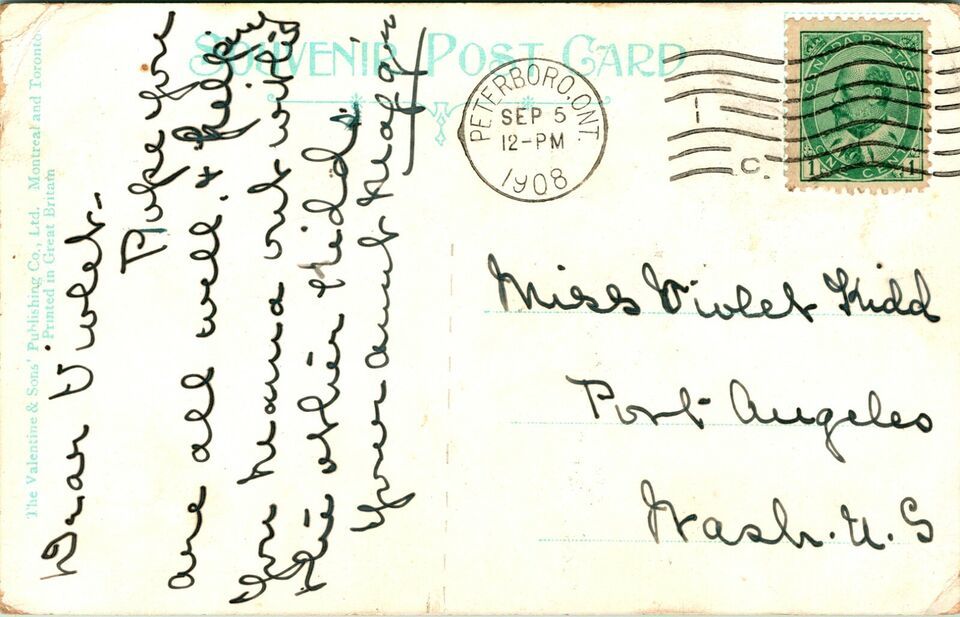 SOUVENIR POST CARD
The Valentine & Sons' Publishing Co., Ltd. Montreal and Toronto
Printed in Great Britain
PETERBORO, ONT.
SEP 5
12-PM
1908
C.
CANADA POSTAGE
1 ONE CENT 1
Dear Violet-
Hope you
are all well, & helping
your mama out with
the other kidds.
Your aunt
Miss Violet Kidd
Port Angeles
Wash. U.S